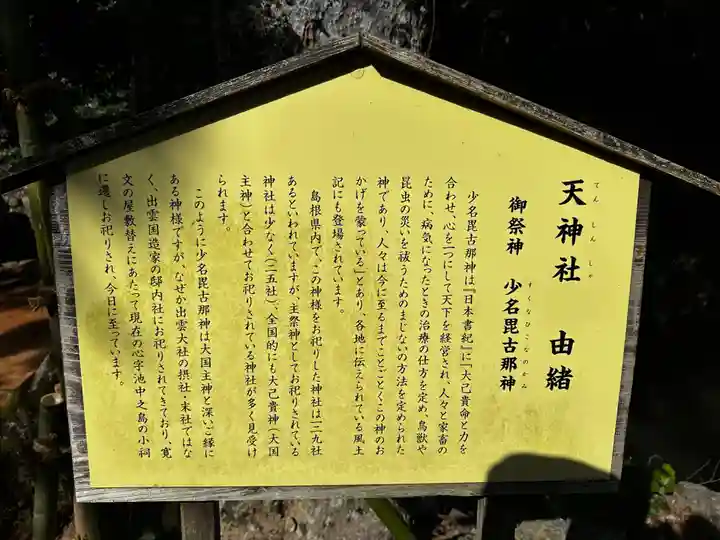 天神社 由緒
てんしんしゃ
御祭神 少名毘古那神
すくなひこなのかみ
少名毘古那神は『日本書紀』に「大己貴命と力を
合わせ、心を一つにして天下を経営され、人々と家畜の
ために、病気になったときの治療の仕方を定め、鳥獣や
昆虫の災いを祓うためのまじないの方法を定められた
神であり、人々は今に至るまでことごとくこの神のお
かげを蒙っている」とあり、各地に伝えられている風土
記にも登場されています。
島根県内で、この神様をお祀りした神社は一二九社
あるといわれていますが、主祭神としてお祀りされている
神社は少なく(二五社)、全国的にも大己貴神(大国
主神)と合わせてお祀りされている神社が多く見受け
られます。
このように少名毘古那神は大国主神と深いご縁に
ある神様ですが、なぜか出雲大社の摂社・末社ではな
く、出雲国造家の邸内社にお祀りされてきており、寛
文の屋敷替えにあたって現在の心字池中之島の小祠
に遷しお祀りされ、今日に至っています。